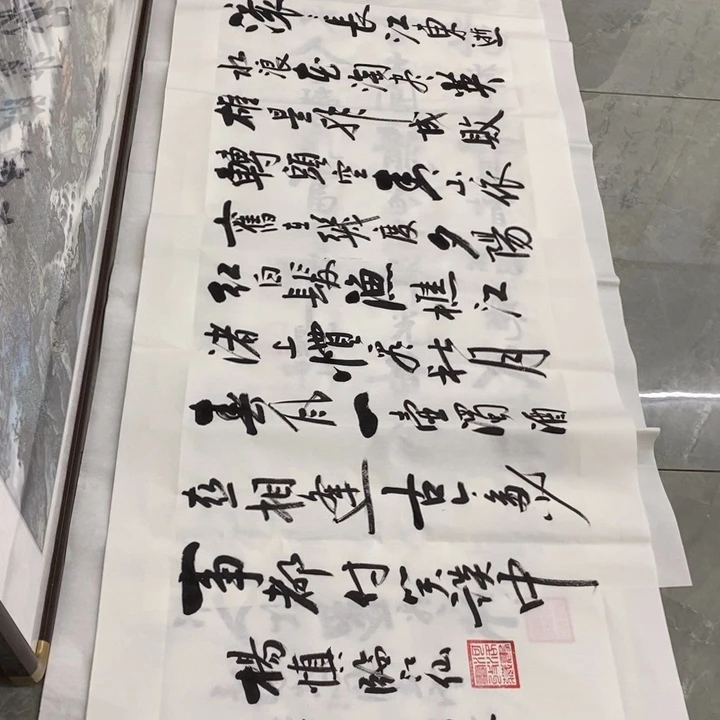 滾長江東逝
水浪花淘盡英
雄是非成敗
轉頭空青山依
舊在幾度夕陽
紅白髮漁樵江
渚上慣看秋月
春風一壺濁酒
喜相逢古今多少
事都付笑談中
楊慎臨江仙